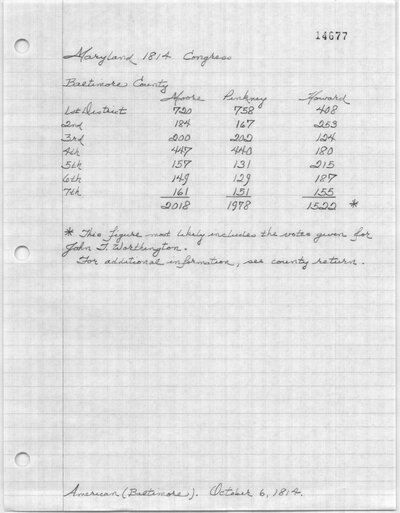 14677
Maryland 1814 Congress
Baltimore County
Moore Pinkney Howard
1st District 720 758 408
2nd 184 167 253
3rd 200 202 124
4th 447 440 180
5th 157 131 215
6th 149 129 187
7th 161 151 155
2018 1978 1522 *
* This figure most likely includes the votes given for
John T. Worthington.
For additional information, see county return.
American (Baltimore). October 6, 1814.